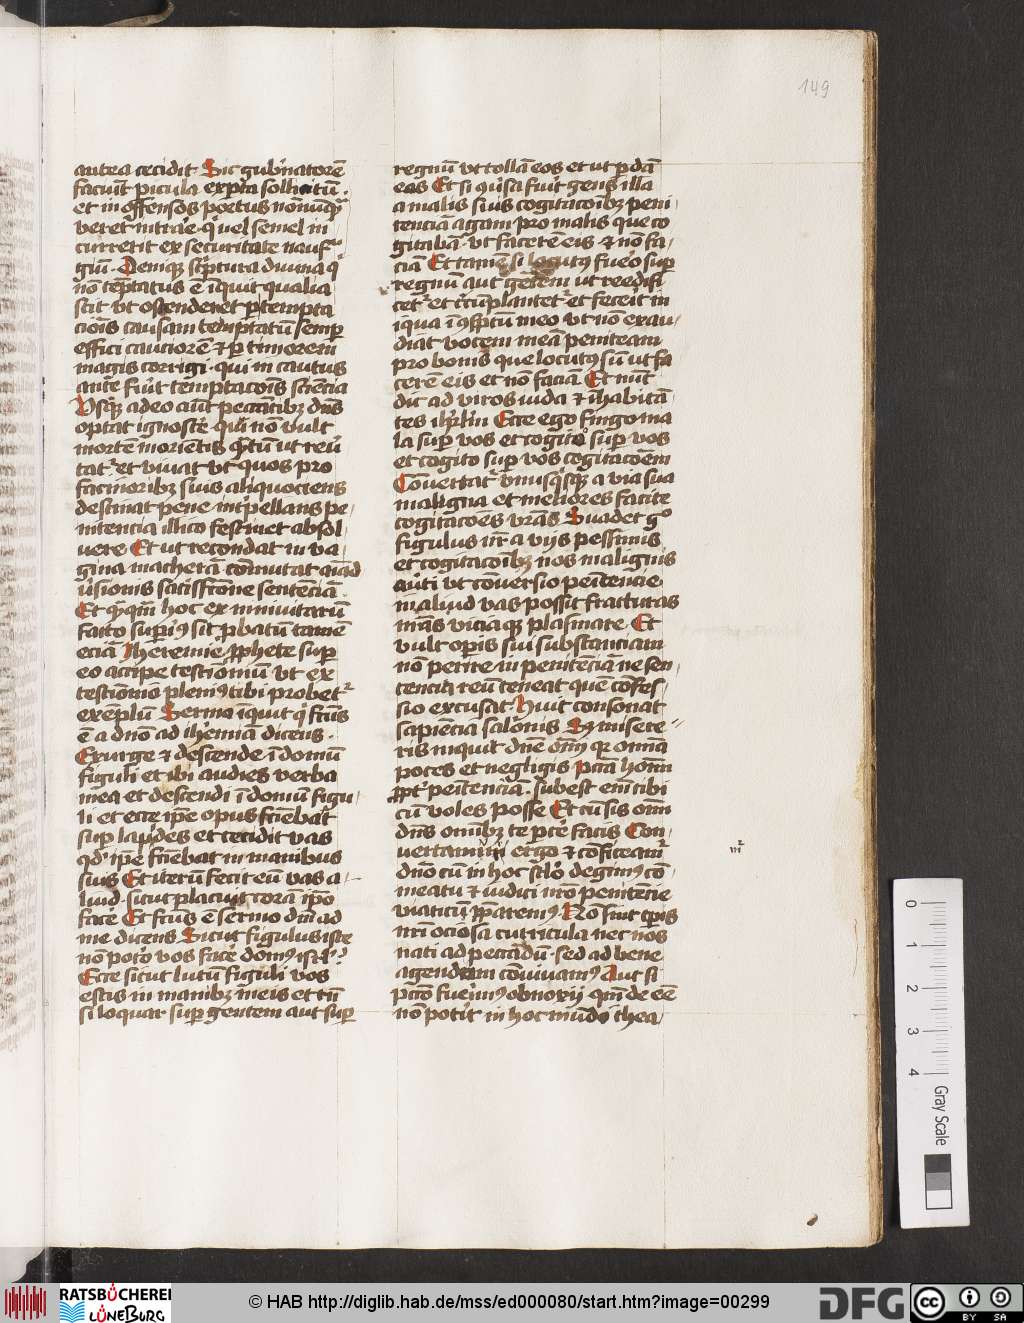 149
antea cecidit Sic gub'natorē
faciūt picula exp̄ta sollicitū ·
et in offensos poetus nōnūqͣ
veret nitrate qͥ uel semel in
currerit ex securitate nauf
giū · Deniqꝫ sc̄ptura diuina qͥ
nō tēptatus ē iquit qualia
scit vt ostenderet ꝑ tempta
cōis causam temptatū semꝑ
effici cauciorē ⁊ ꝑ timorem
magis corrigi · qui in cautus
ante fuīt tēmptacōis sciēncia
Usqꝫ adeo aūt peccātibꝫ dn̄s
optat ignoscē qui nō vult
mortē morientis qͣtū ut reū
tat᷑ et viuat vt quos pro
facinoribꝫ suis aliquociens
destinat pene int'pellans pe
nitencia illico festinet absol
uere Et ut recondat in va
gina macherā cōmutat aiād
u'sionis satisffcōne sentēciā ·
Et qͣqͣm hoc ex niniuitarū
facto suꝑiꝰ sit ꝓbatū tamē
eciā Jheremie ꝓphete suꝑ
eo accipe testiōniū vt ex
testiōnio pleniꝰ tibi probet᷑
exēplū Sermo īquit qͥ fc̄us
ē a dn̄o ad ih'emiā dicens ·
Exurge ⁊ descende ī domū
figuli et ibi audies verba
mea et descendi ī domū figu
li et ecce ip̄e opus faciebat
suꝑ lapides et cecidit vas
qd' ip̄e faciebat in manibus
suis Et iterū fecit eū vas a
liud · sicut placuit corā ip̄o
face' Et fc̄us ē sermo dn̄i ad
me dicens Sicut figulus iste
nō poto' vos face' domꝰ isrl'?
Ecce sicut lutū figuli vos
estis in manibꝫ meis et cū
si loquar suꝑ gentem aut suꝑ
regnū vt tollā eos et ut ꝑdā
eos Et si qͥsa fuīt gens illa
a malis suis cogitacōibꝫ peni
tenciā agam pro malis que co
gitabā vt facerē eis ⁊ nō fa
ciā Et tamē si locutꝰ fue'o suꝑ
regnū aut gentem ut reedifi
cet᷑ et cͥcūplantet᷑ et fecerit in
iqͣua ī ꝯspc̄tū meo vt nō exau
diat vocem meā peniteam
pro bonis que locutꝰ sū ut fa
cere eis et nō faciā Et nūc
dic ad viros iuda ⁊ ihabitā
tes ihr̄lm Ecce ego fingo ma
la suꝑ vos et cogito suꝑ vos
et cogito suꝑ vos cogitacōem
Conuertat᷑ vnusqͥsqꝫ a via sua
maligna et meliores facite
cogitacōes vr̄as Suadet gͦ
figulus nr̄ a vijs pessimis
et cogitacōibꝫ nos malignis
aūti vt cōuersio penitencie
in aliud vas possit fracturas
nr̄as viciaqꝫ plasmare · Et
vult oꝑis sui substanciam
nō perire in penitēciā ne sen
tencia reū teneat que cōfes
sio excusat · Huic consonat
sapiēcia salōnis Sꝫ misere
ris inquit dn̄e oīm qꝛ omnia
potes et negligis pc̄ta hoīm
ꝓpt' penitenciā · subest enī tibi
cū voles posse Et cū sis oīm
dn̄s omībꝫ te ꝑcē facis Con
uertamur ergo ⁊ cōfiteam᷑
dn̄o cū in hoc sc̄lo degimꝰ cō
meatū ⁊ iudici nr̄o penitēcie
viaticū ꝑparemꝰ · Nō sint cꝑis
nr̄i ociosa curricula nec nos
nati ad peccādū · sed ad bene
agendum cōuiuamꝰ Aut si
pc̄tō fuerimꝰ obnoxij qm̄ de eē
nō potīt in hoc mūdo thea
© HAB http://diglib.hab.de/mss/ed000080/start.htm?image=00299
RATSBÜCHEREI
LÜNEBURG
DFG
cc
BY SA
0 1 2 3 4
Gray Scale